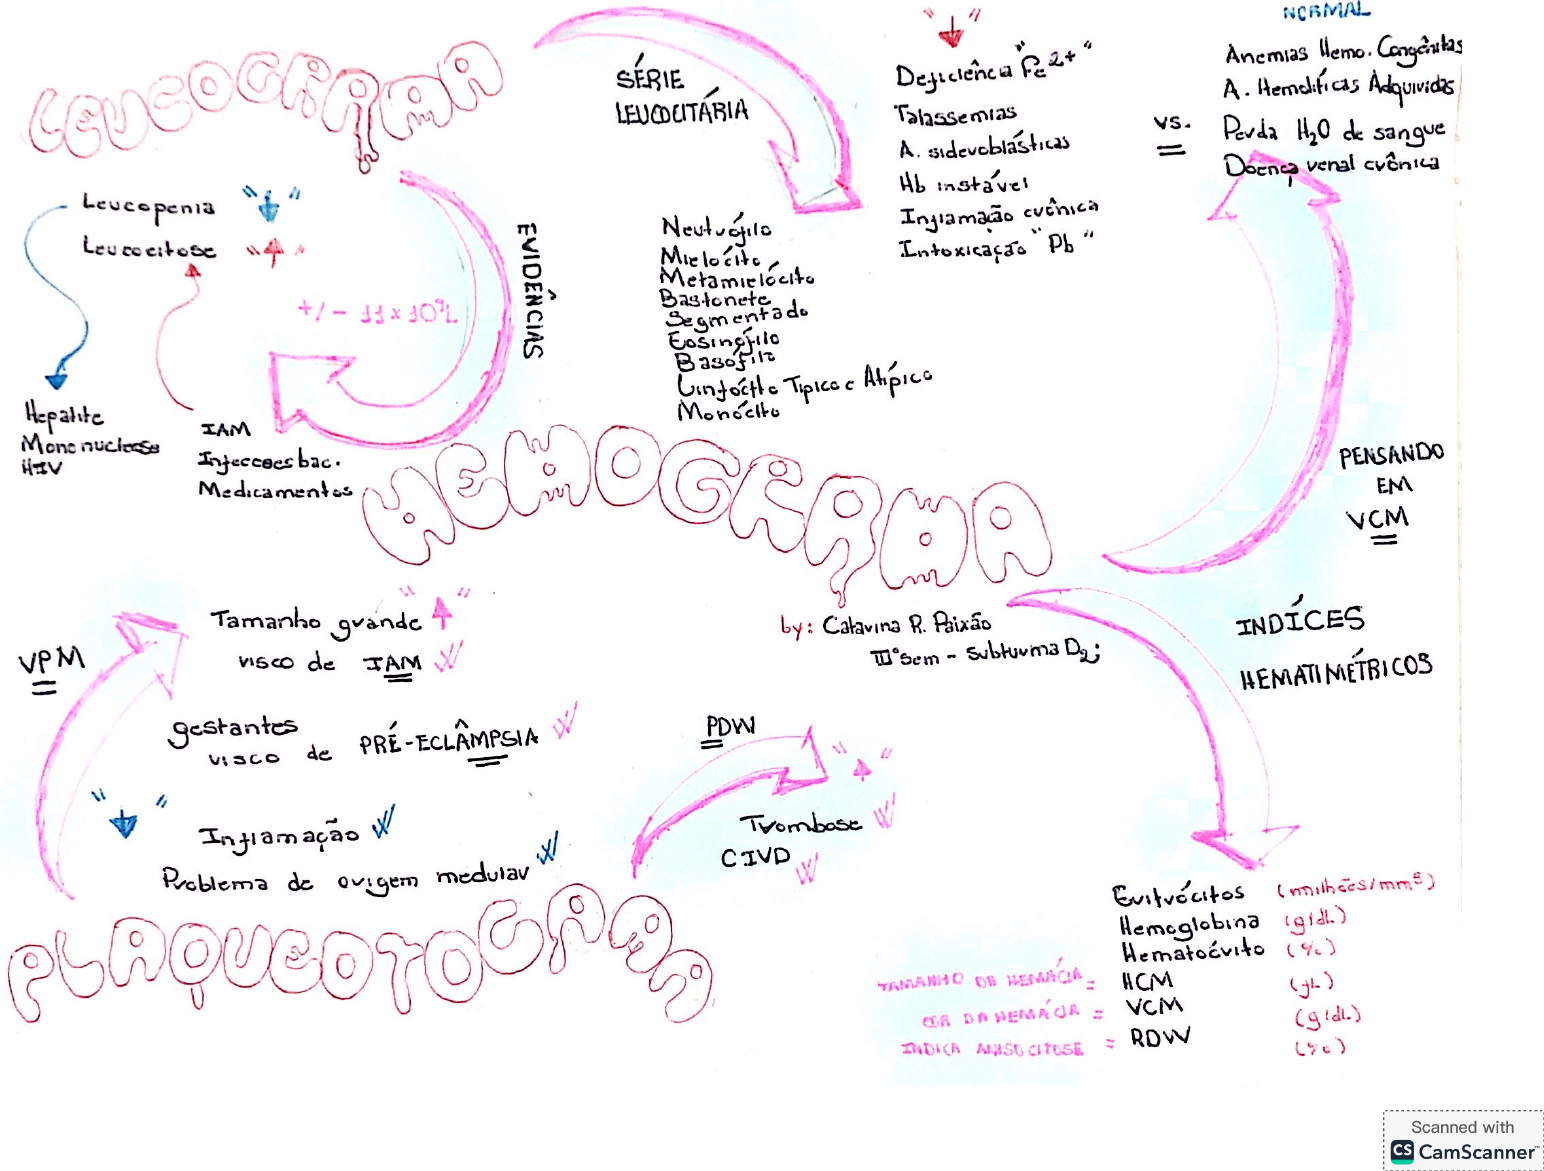 LEUCOGRAMA
Leucopenia "↓"
Leucocitose "↑"
+/- 11x10⁹L
EVIDÊNCIAS
Hepatite
Mononucleose
HIV
IAM
Infecçoes bac.
Medicamentos
SÉRIE
LEUCOCITÁRIA
Neutrófilo
Mielócito
Metamielócito
Bastonete
Segmentado
Eosinófilo
Basófilo
Linfócito Típico e Atípico
Monócito
"↓"
Deficiência "Fe2+"
Talassemias
A. sideroblásticas
Hb instável
Inflamação crônica
Intoxicação "Pb"
vs.
NORMAL
Anemias Hemo. Congênitas
A. Hemolíticas Adquiridas
Perda H₂O de sangue
Doença renal crônica
PENSANDO
EM
VCM
HEMOGRAMA
by: Catarina R. Paixão
III°sem - subturma D2;
ÍNDICES
HEMATIMÉTRICOS
Eritrócitos (milhões/mm³)
Hemoglobina (g/dL)
Hematócrito (%)
TAMANHO DA HEMÁCIA = HCM (fL)
COR DA HEMÁCIA = VCM (g/dL)
INDICA ANISOCITOSE = RDW (%)
VPM
Tamanho grande "↑"
risco de IAM
gestantes
risco de PRÉ-ECLÂMPSIA
"↓"
Inflamação
Problema de origem medular
PDW
"↑"
Trombose
CIVD
PLAQUETOGRAMA
Scanned with
CS CamScanner